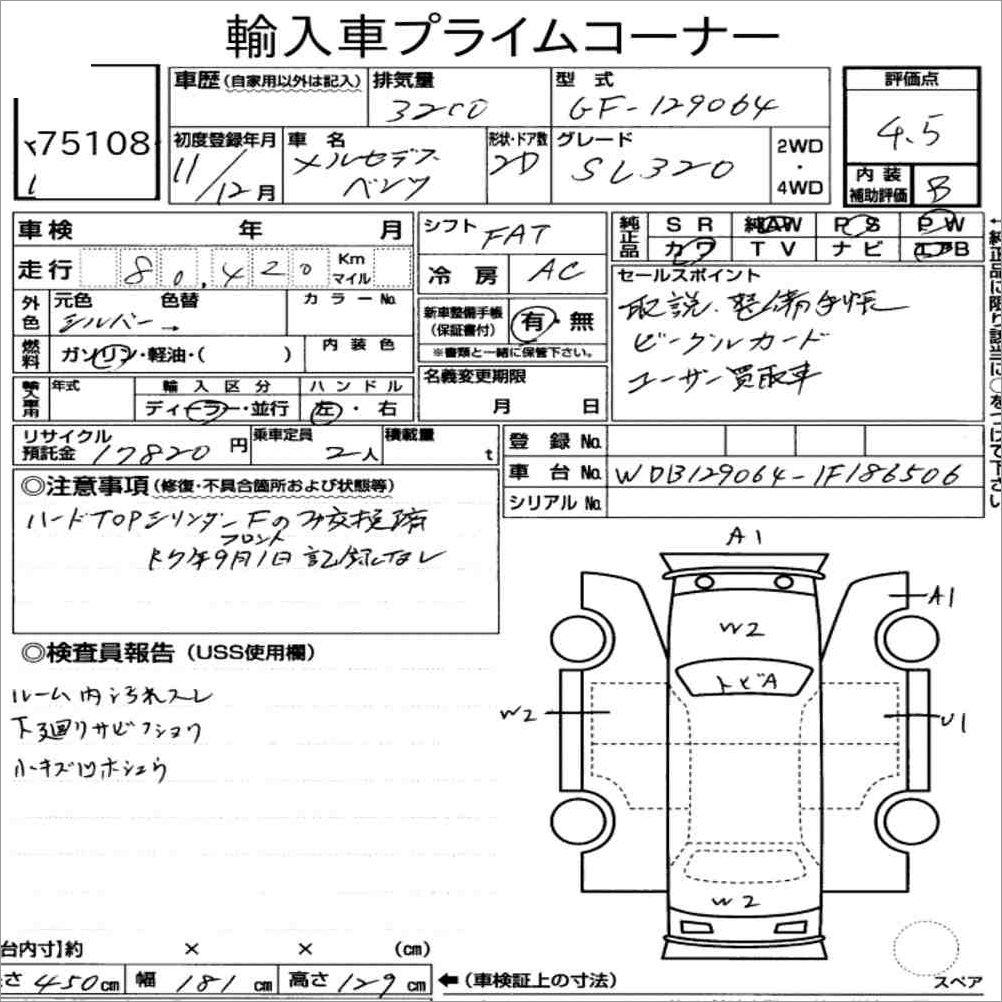 輸入車プライムコーナー
75108
車歴 (自家用以外は記入) 排気量 型式 評価点
3200 GF-129064 4.5
初度登録年月 車名 形状・ドア数 グレード 2WD・4WD 内装補助評価
11/12月 メルセデスベンツ 2D SL320 B
車検 年 月 シフト FAT 純正品 SR 純AW PS PW
カワ TV ナビ エアB
走行 80,420 Km マイル 冷房 AC
セールスポイント
取説.整備手帳
ビークルカード
ユーザー買取車
外色 元色 色替 カラーNo.
シルバー→
新車整備手帳(保証書付) 有・無
※書類と一緒に保管下さい。
燃料 ガソリン・軽油・( ) 内装色
名義変更期限
月 日
輸入車用 年式 輸入区分 ハンドル
ディーラー・並行 左・右
←純正品に限り該当に○をつけて下さい
リサイクル預託金 17820円 乗車定員 2人 積載量 t
登録No.
車台No. WDB129064-1F186506
シリアルNo.
◎注意事項 (修復・不具合箇所および状態等)
ハードTOPシリンダーFのみ交換済
フロント
年9月1日 記録なし
◎検査員報告 (USS使用欄)
ルーム内汚れスレ
下廻りサビ
小キズ凹
A1
A1
W2
トビA
W2
U1
W2
台内寸】約 × × (cm)
さ 450 cm 幅 181 cm 高さ 129 cm ←(車検証上の寸法)
スペア